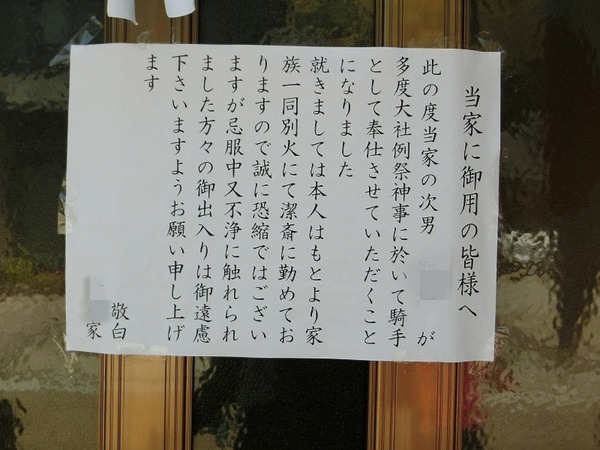 当家に御用の皆様へ
此の度当家の次男　　　が
多度大社例祭神事に於いて騎手
として奉仕させていただくこと
になりました
就きましては本人はもとより家
族一同別火にて潔斎に勤めてお
りますので誠に恐縮ではござい
ますが忌服中又不浄に触れられ
ました方々の御出入りは御遠慮
下さいますようお願い申し上げ
ます
敬白
家